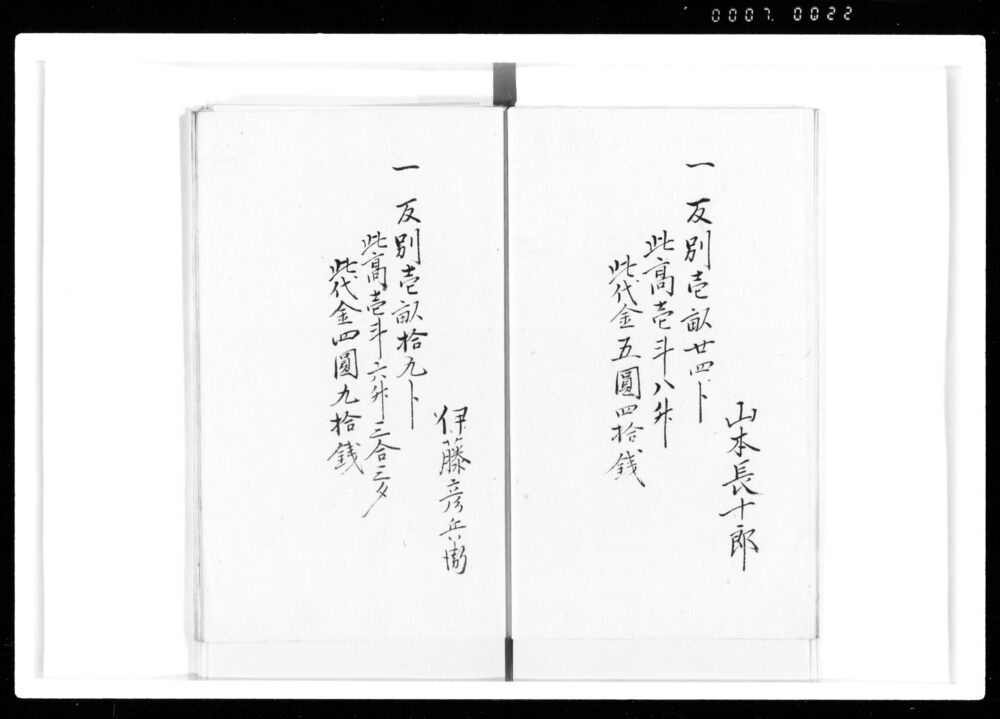 0007. 0022
山本長十郎
一 反別壱畝廿四卜
此高壱斗八升
此代金五圓四拾銭
伊藤彦兵衛
一 反別壱畝拾九卜
此高壱斗六升三合三夕
此代金四圓九拾銭